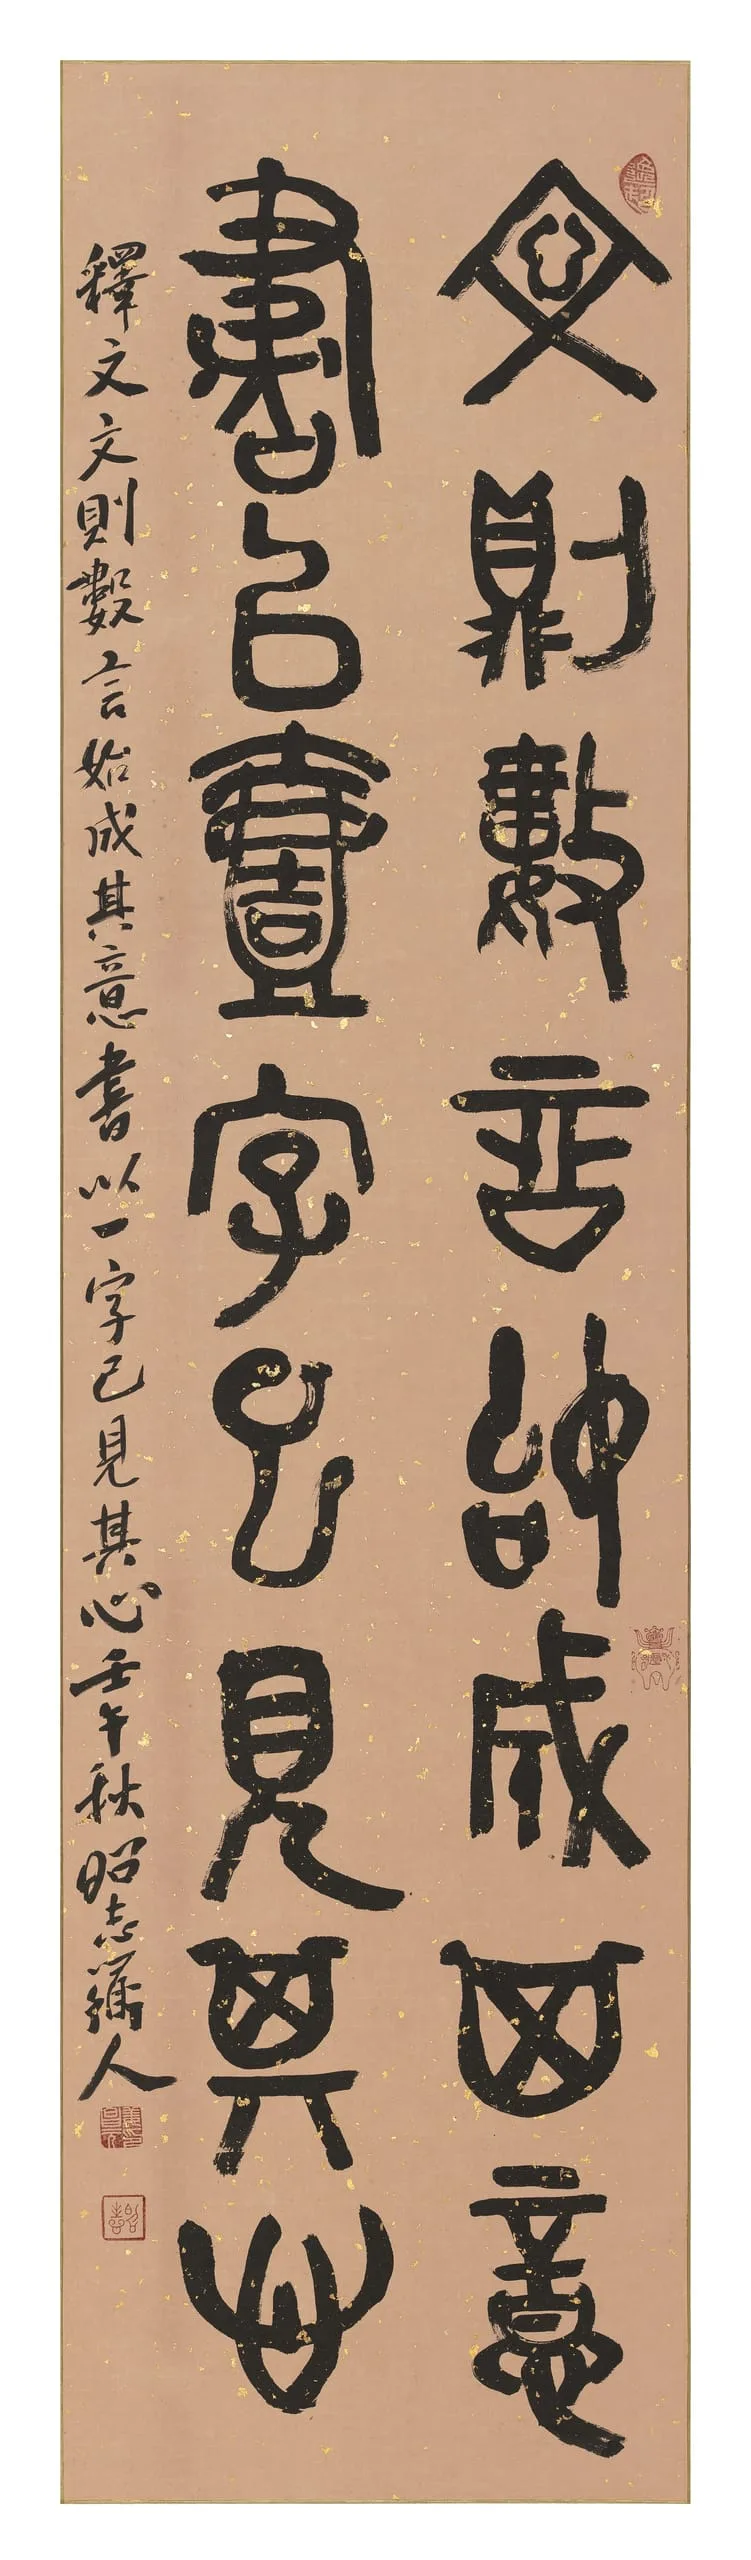 文則數言始成其意
書以壹字已見其心
釋文文則數言始成其意書以一字已見其心壬午秋昭志彌人